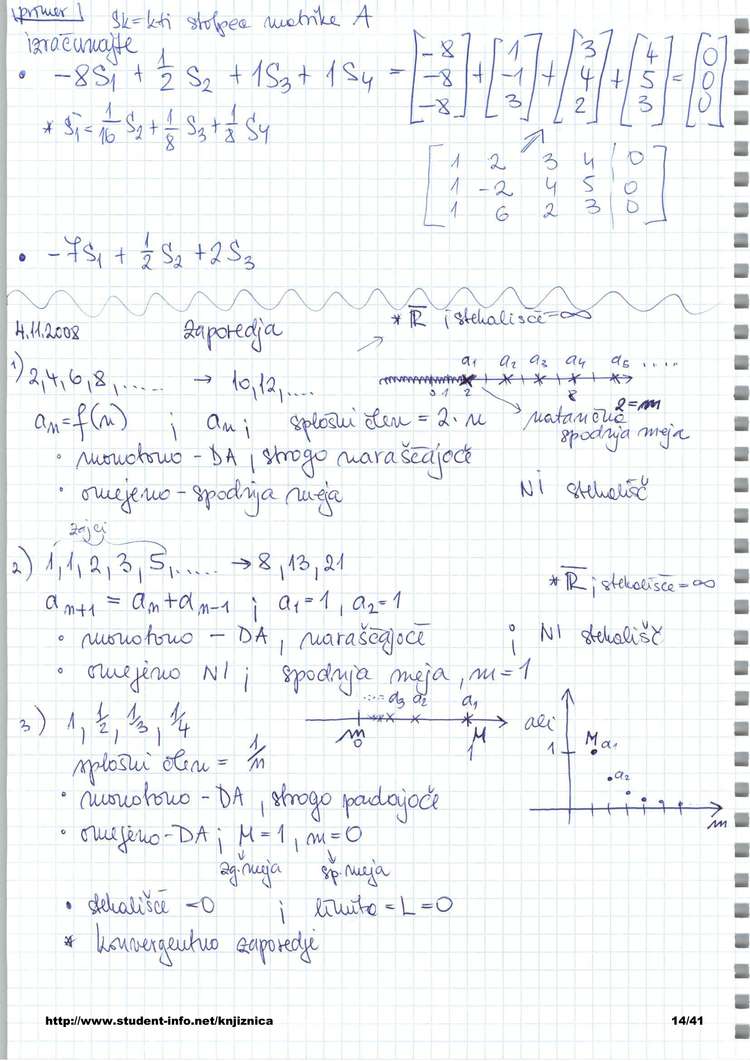 primer Sk = k-ti stolpec matrike A
izračunajte
• -8S1 + 1/2 S2 + 1S3 + 1S4 = [-8 -8 -8] + [1 -1 3] + [3 4 2] + [4 5 3] = [0 0 0]
* S1 = 1/16 S2 + 1/8 S3 + 1/8 S4
[1 2 3 4 | 0
1 -2 4 5 | 0
1 6 2 3 | 0]
• -7S1 + 1/2 S2 + 2S3
4.11.2008 Zaporedja * R̅ ; stekališče = ∞
1) 2, 4, 6, 8, ..... → 10, 12, ....
a1 a2 a3 a4 a5 ....
0 1 2 8
an = f(n) ; an ; splošni člen = 2·n
2 = m natančna spodnja meja
• monotono - DA, strogo naraščajoče
• omejeno - spodnja meja NI stekališč
zajci
2) 1, 1, 2, 3, 5, ..... → 8, 13, 21
* R̅ ; stekališče = ∞
an+1 = an + an-1 ; a1 = 1, a2 = 1
• monotono - DA, naraščajoče ; NI stekališč
• omejeno NI ; spodnja meja, m = 1
3) 1, 1/2, 1/3, 1/4
.... a3 a2 a1
m 0 M 1
ali
1 M a1
a2
n
splošni člen = 1/n
• monotono - DA, strogo padajoče
• omejeno - DA ; M = 1, m = 0
zg. meja sp. meja
• stekališče = 0 ; limita = L = 0
* konvergentno zaporedje
http://www.student-info.net/knjiznica 14/41